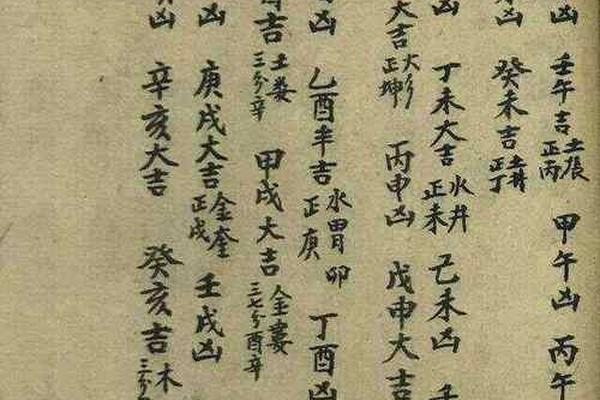 凶 壬午吉 土張 正丙 甲午凶 丙午
凶 癸未吉 土井 正丁
凶 丁未大吉 水井 正未 己未凶 壬
大吉 正坤 丙申凶 戊申大吉
凶 乙酉半吉 水胃卯 正庚 丁酉凶
吉 土娄 三分辛 甲戌大吉 金婁 三七分酉辛
凶 庚戌大吉 金奎 正戌 壬戌凶
凶 辛亥大吉 癸亥吉 木 三分